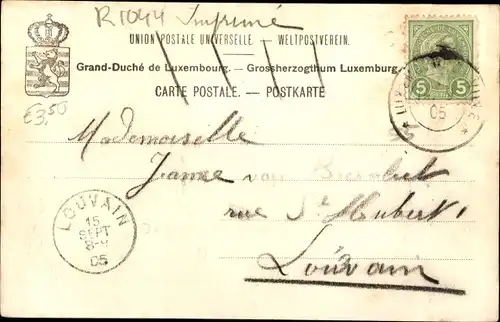 R1044 Imprimé
UNION POSTALE UNIVERSELLE. — WELTPOSTVEREIN.
Grand-Duché de Luxembourg. — Grossherzogthum Luxemburg.
CARTE POSTALE. — POSTKARTE
5 5
05
€3,50
Mademoiselle
Jeanne van
rue St Hubert 1
Louvain
LOUVAIN
15
SEPT
05